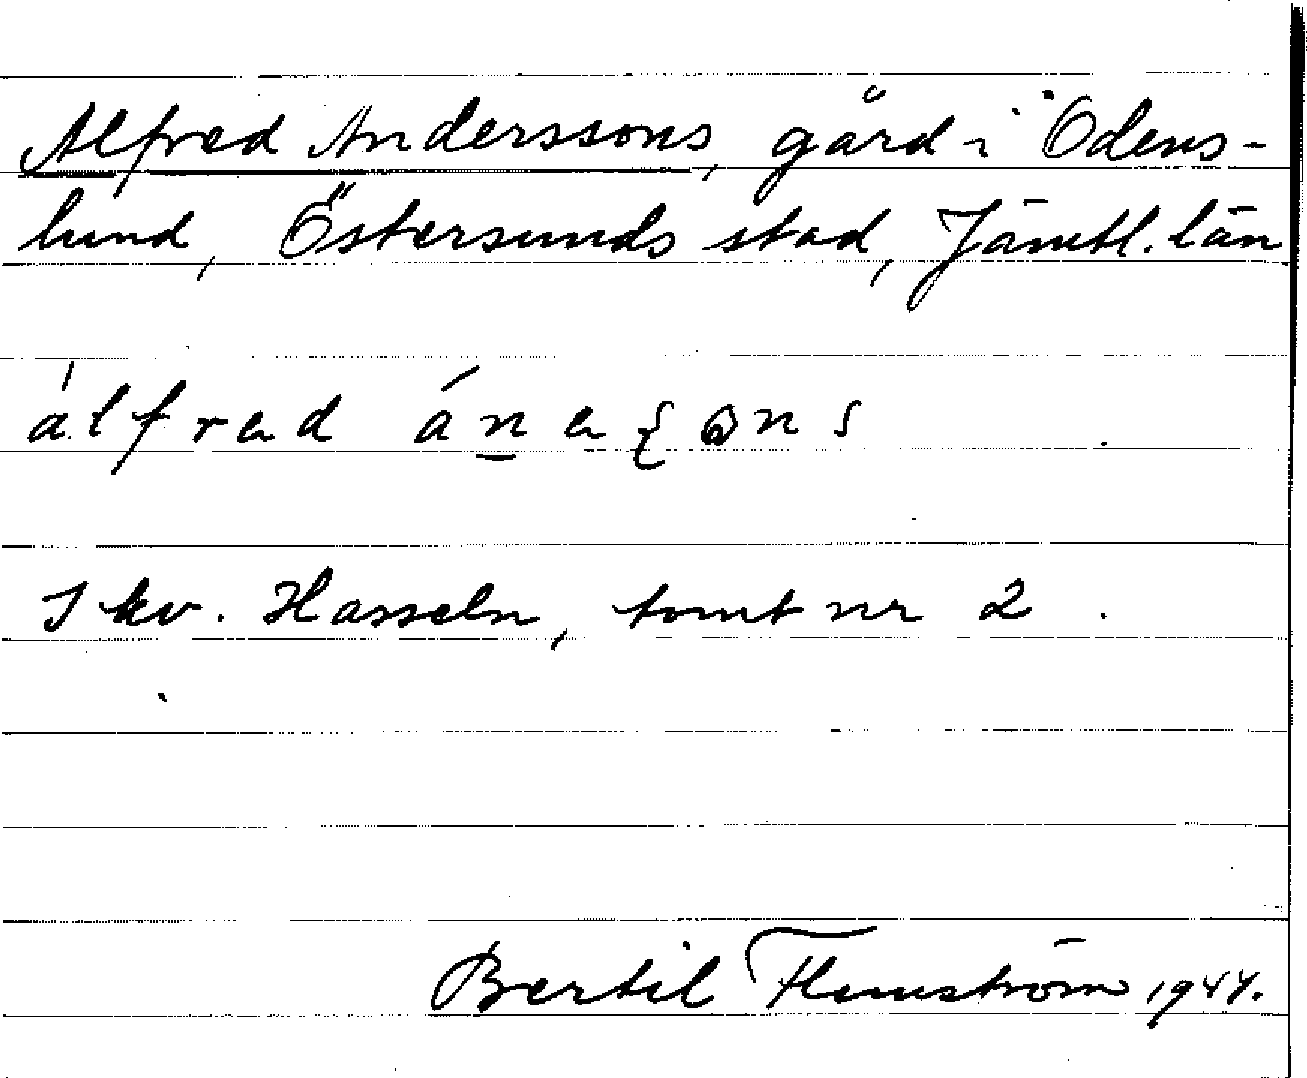 Alfred Anderssons, gård i Odens-
lund, Östersunds stad, Jämtl. län
I kv. Hasseln, tomt nr 2.
Bertil Flemström 1944.